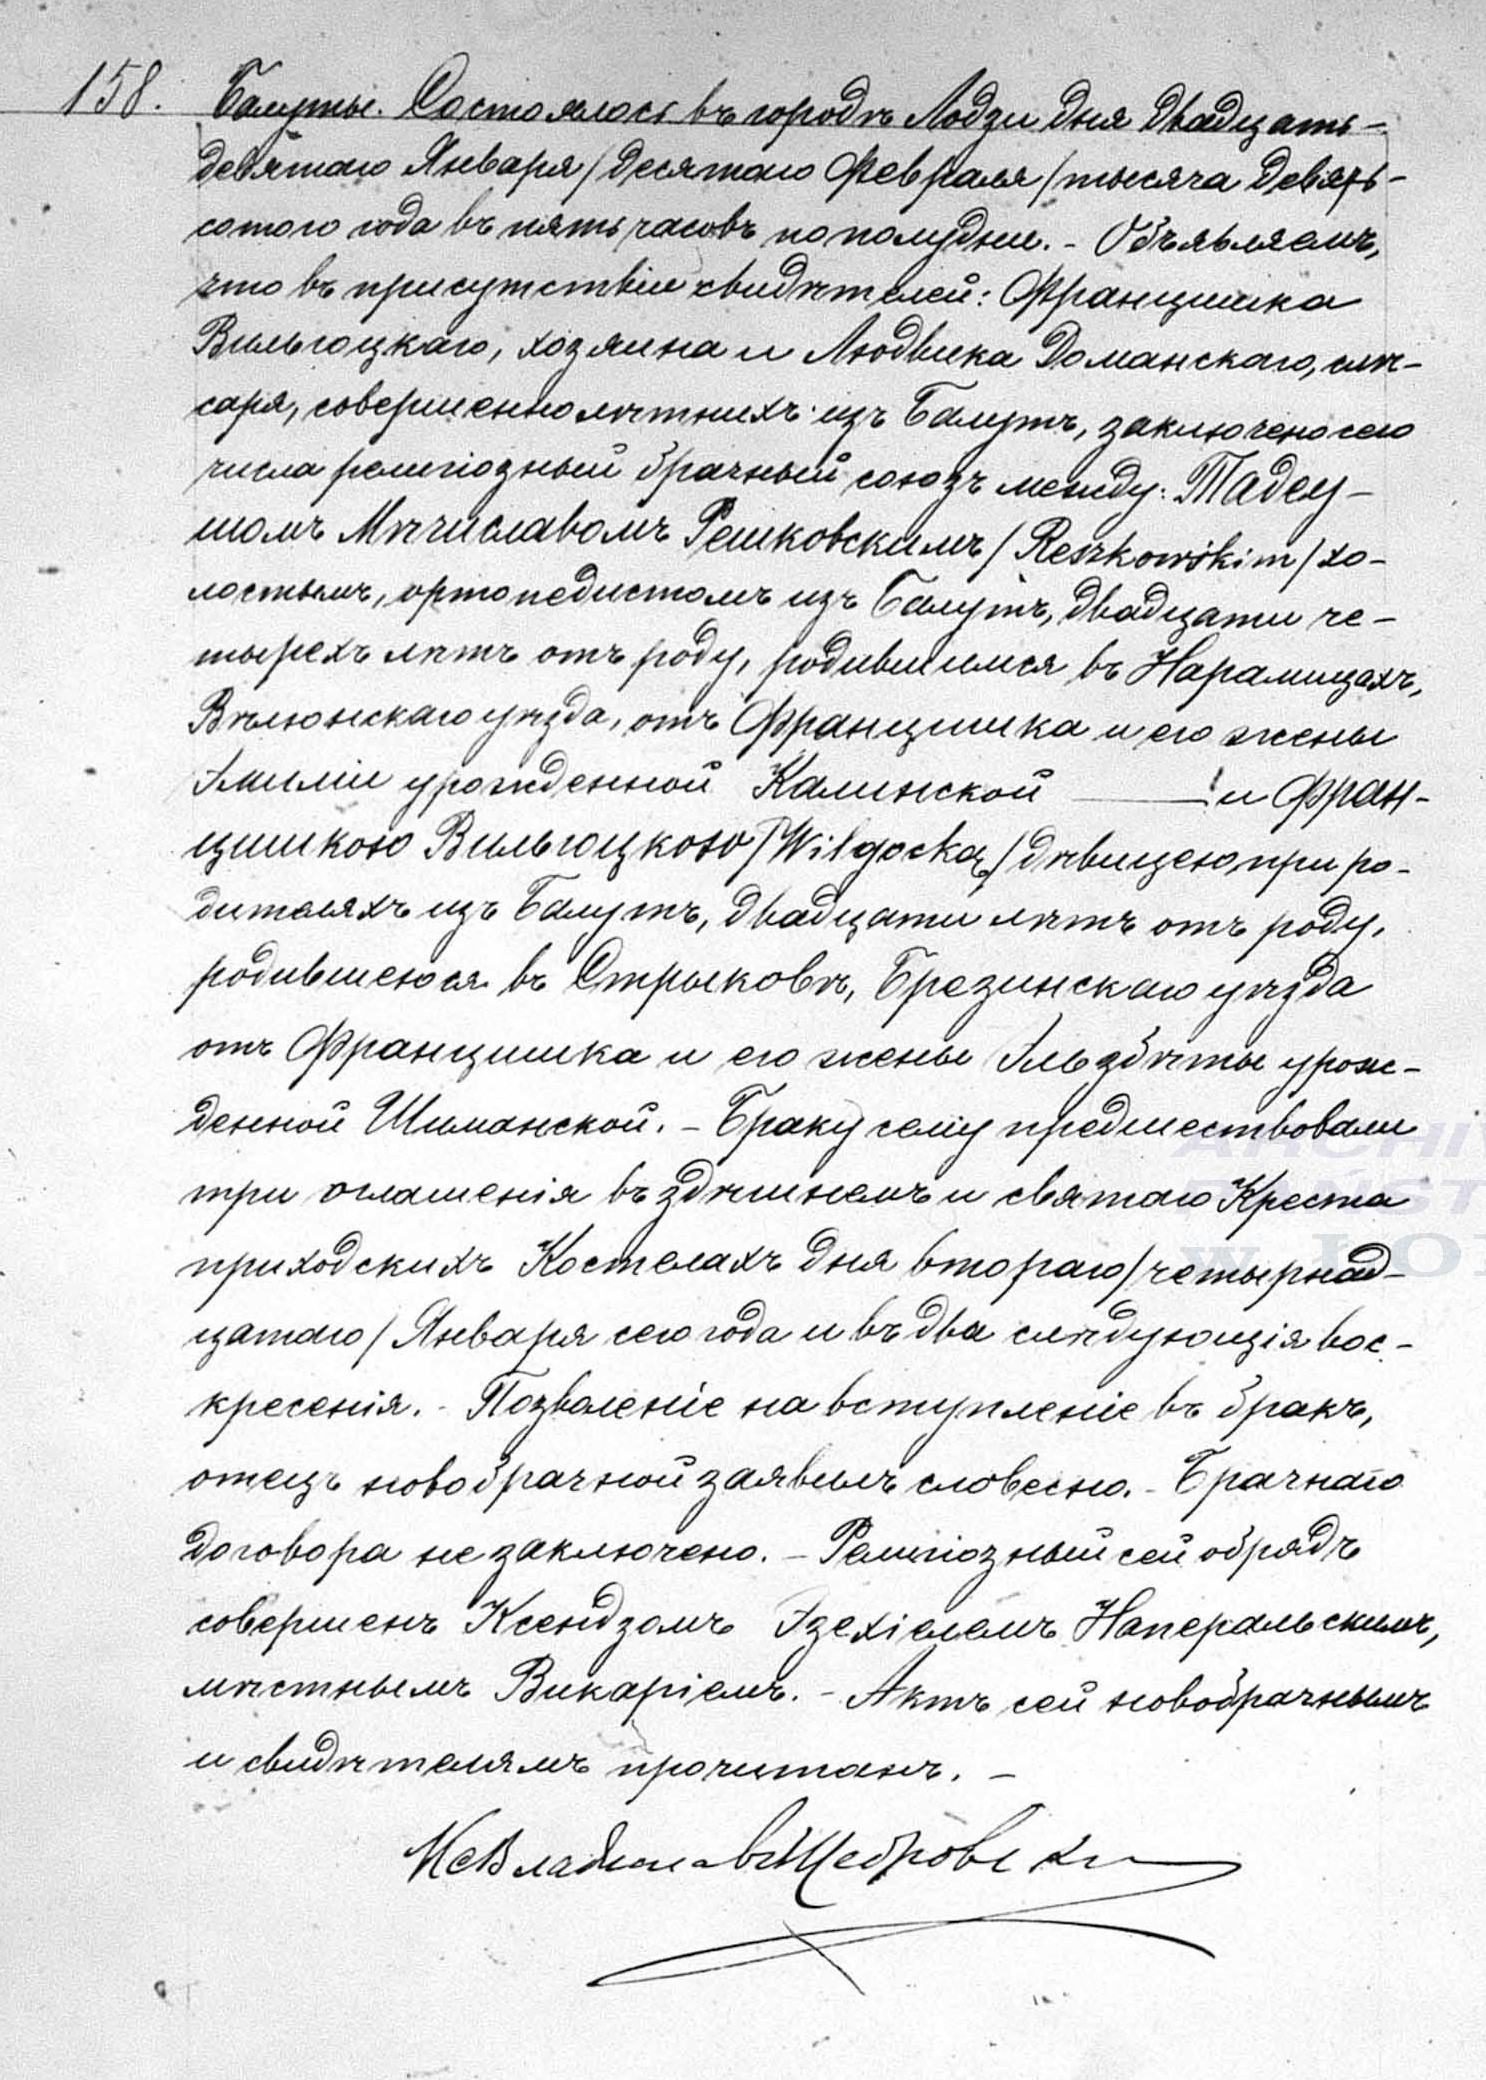 158. Балуты. Состоялось въ городѣ Лодзи дня двадцать-
девятаго Января /десятаго Февраля/ тысяча девять-
сотого года въ пять часовъ пополудни. - Объявляемъ,
что въ присутствіи свидѣтелей: Францишка
Вильгоцкаго, хозяина и Людвика Доманскаго, слѣ-
саря, совершеннолѣтнихъ изъ Балутъ, заключено сего
числа религіозный брачный союзъ между: Тадеу-
шомъ Мѣчиславомъ Решковскимъ /Reszkowskim/ хо-
лостымъ, ортопедистомъ изъ Балутъ, двадцати че-
тырехъ лѣтъ отъ роду, родившимся въ Нарамицахъ,
Вѣлюнскаго уѣзда, отъ Францишка и его жены
Эмиліи урожденной Калинской — и Фран-
цишкою Вильгоцкою /Wilgocką/ дѣвицею, при ро-
дителяхъ изъ Балутъ, двадцати лѣтъ отъ роду,
родившеюся въ Стрыковѣ, Брезинскаго уѣзда
отъ Францишка и его жены Эльзбѣты урож-
денной Шиманской. - Браку сему предшествовали
три оглашенія въ здѣшнемъ и святаго Креста
приходскихъ Костелахъ дня втораго /четырнад-
цатаго/ Января сего года и въ два слѣдующія вос-
кресенія. - Позволеніе на вступленіе въ бракъ,
отецъ новобрачной заявилъ словесно. - Брачнаго
договора не заключено. - Религіозный сей обрядъ
совершенъ Ксендзомъ Эзехіелемъ Наперальскимъ,
мѣстнымъ Викаріемъ. - Актъ сей новобрачнымъ
и свидѣтелямъ прочитанъ. -
ARCHI
PAŃST
w ŁO